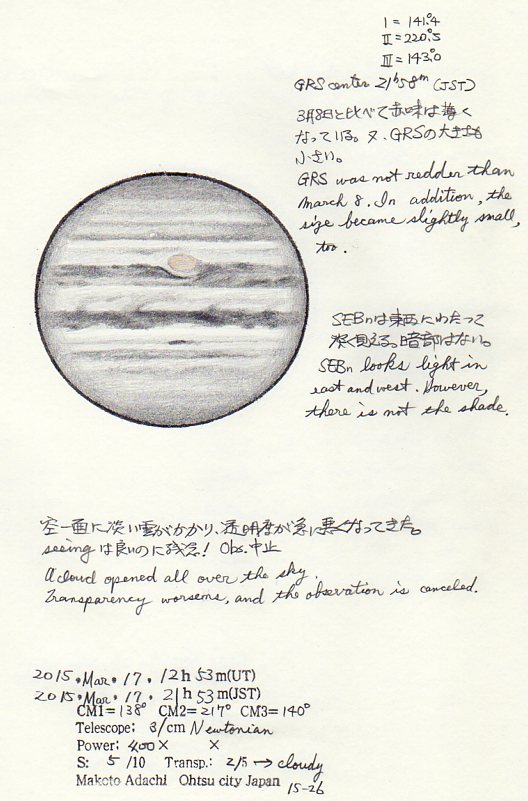 I = 141.°4
II = 220.°5
III = 143.°0
GRS center 21h58m (JST)
3月8日と比べて赤味は薄く
なっている。又、GRSの大きさも
小さい。
GRS was not redder than
March 8. In addition, the
size became slightly small,
too.
SEBnは東西にわたって
淡く見える。暗部はない。
SEBn looks light in
east and west. However,
there is not the shade.
空一面に淡い雲がかかり、透明度が急に悪くなってきた。
seeing は良いのに残念! Obs.中止
A cloud opened all over the sky.
Transparency worsens, and the observation is canceled.
2015, Mar, 17, 12h 53m(UT)
2015, Mar, 17, 21h 53m(JST)
CM1=138° CM2=217° CM3=140°
Telescope; 31cm Newtonian
Power; 400× ×
S: 5 /10 Transp.: 2/5 → cloudy
Makoto Adachi Ohtsu city Japan 15-26